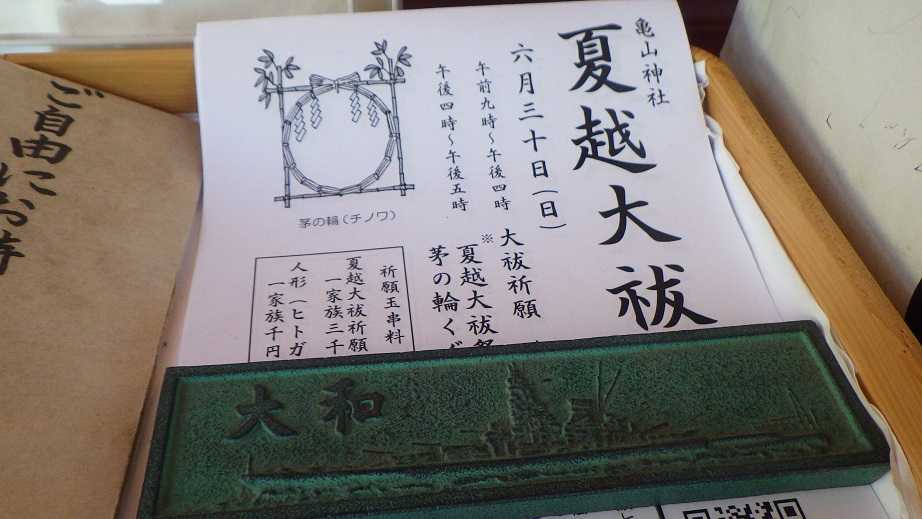 亀山神社
夏越大祓
六月三十日（日）
午前九時～午後四時 大祓祈願
午後四時～午後五時 ※夏越大祓祭
茅の輪く
茅の輪（チノワ）
祈願玉串料
夏越大祓祈願
一家族三千
人形（ヒトガ
一家族千円
ご自由にお持
大和